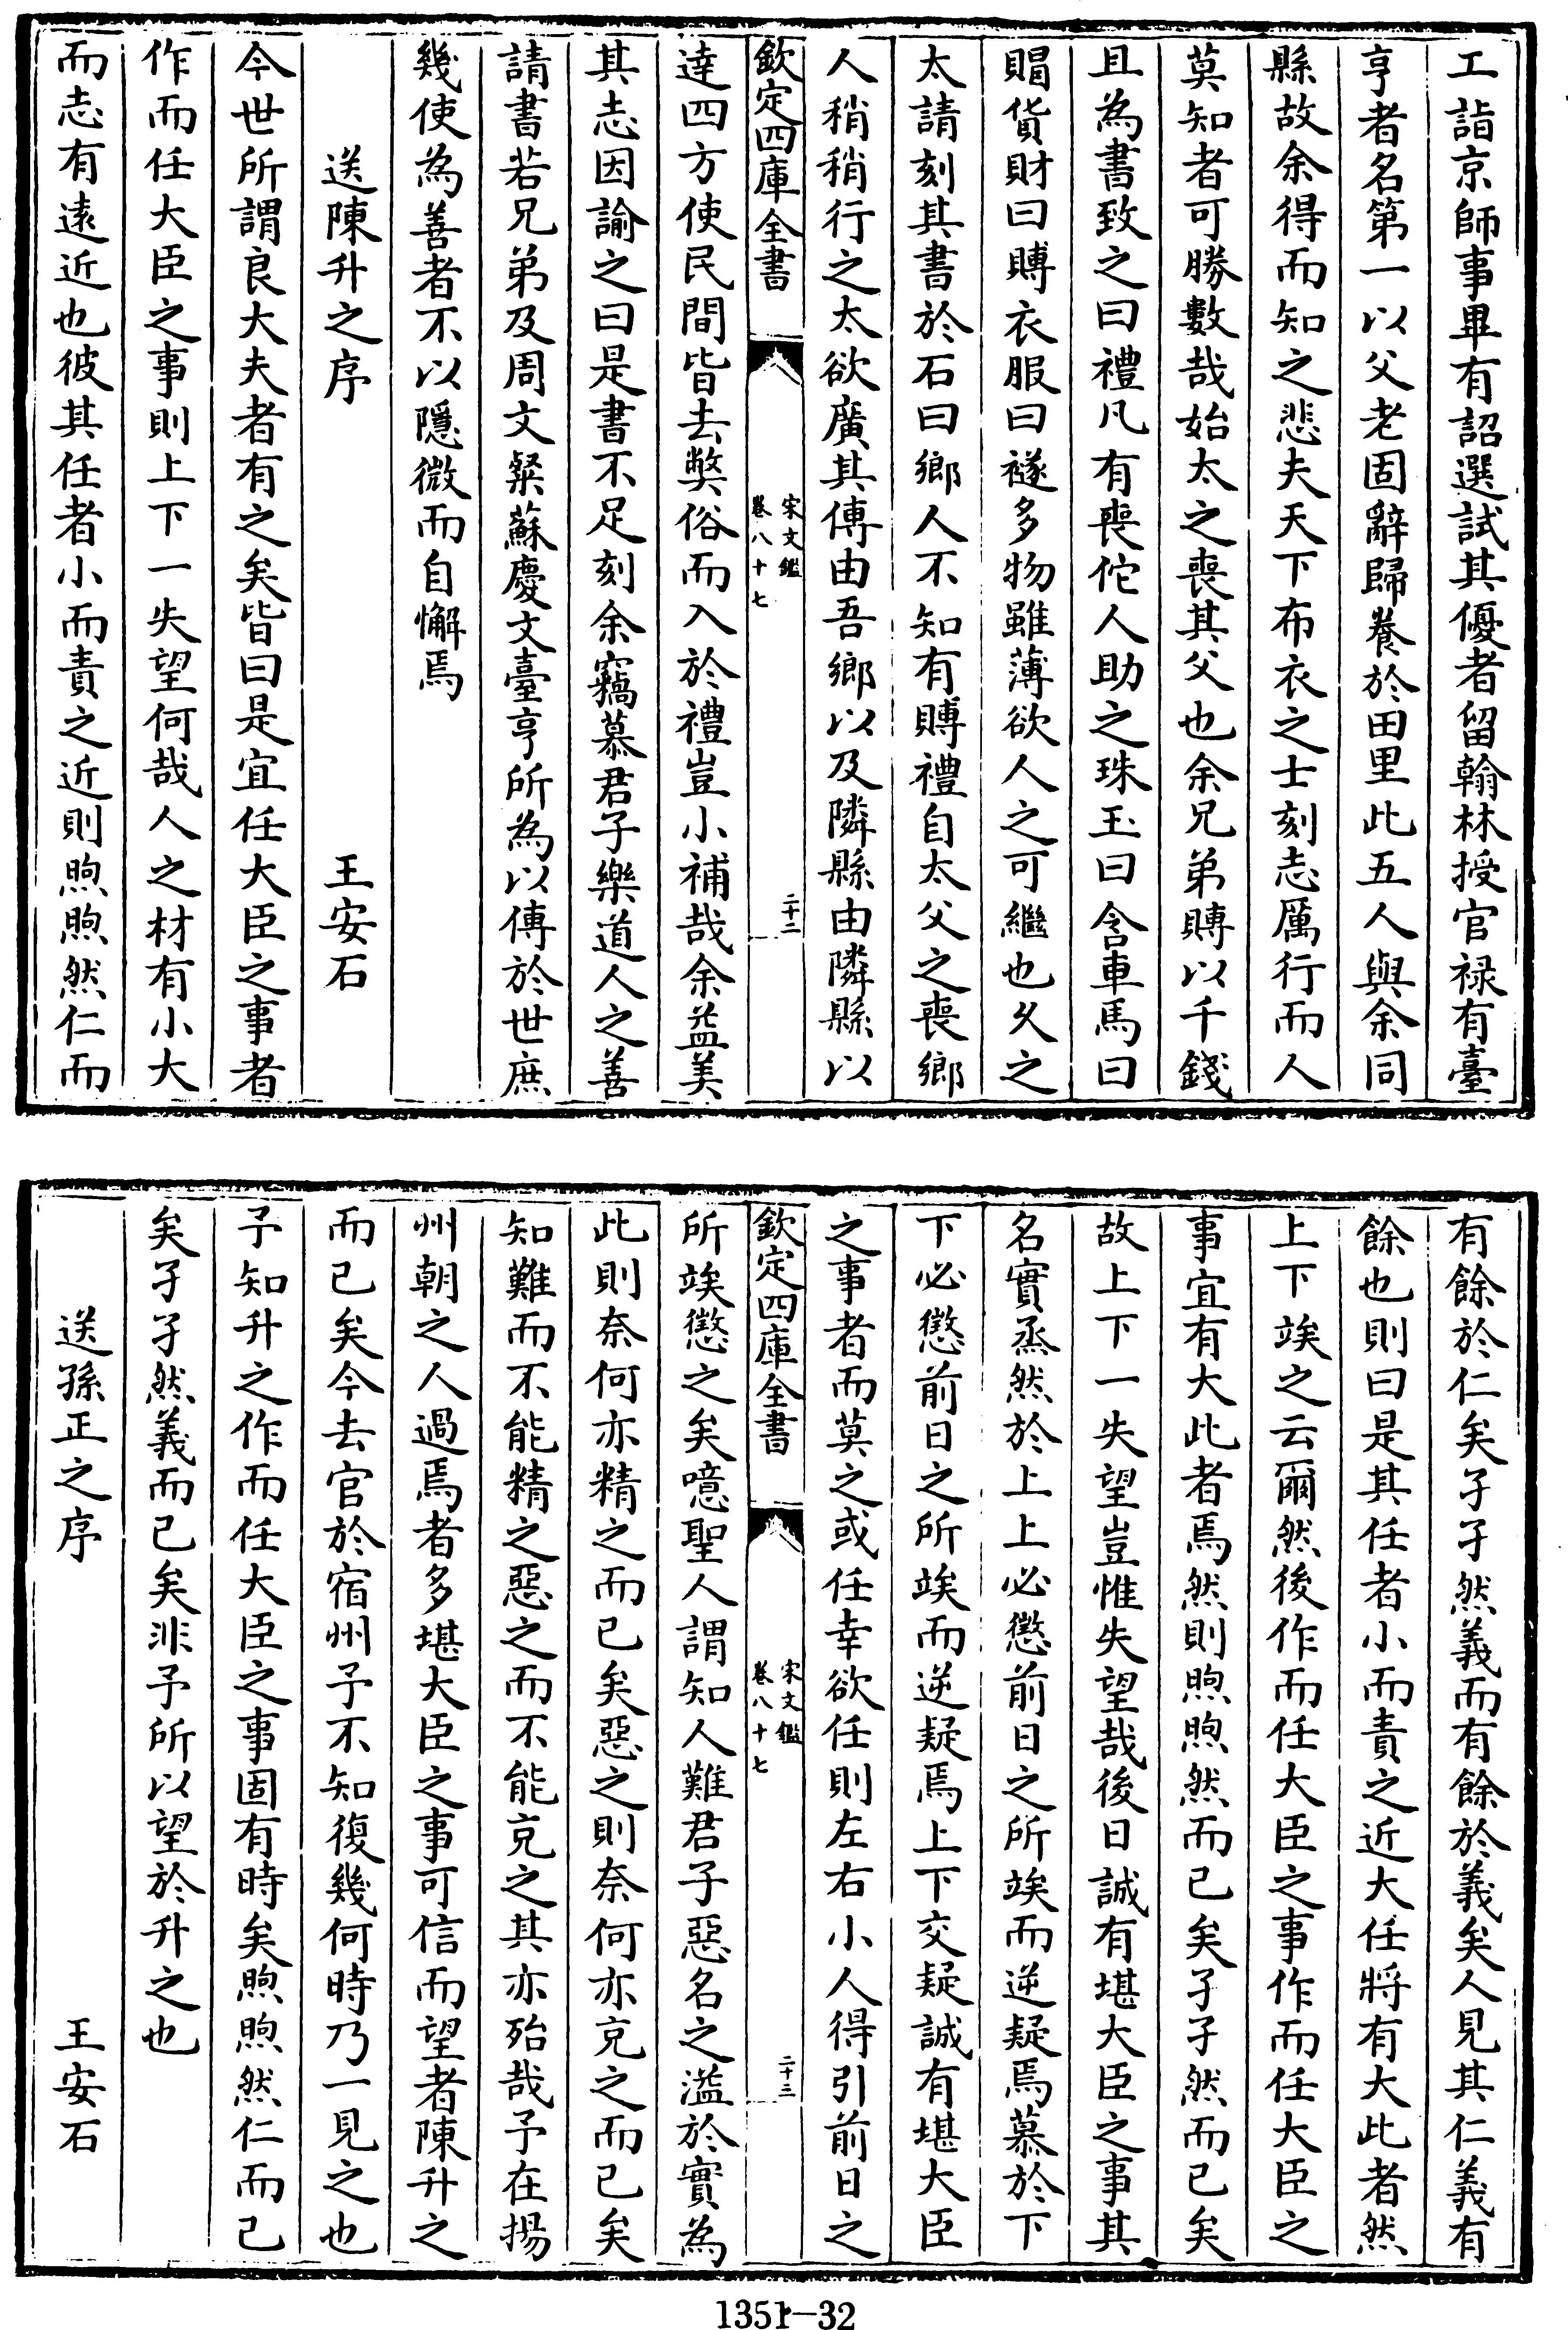 工詣京師事畢有詔選試其優者留翰林授官禄有臺
亨者名第一以父老固辭歸養於田里此五人與余同
縣故余得而知之悲夫天下布衣之士刻志厲行而人
莫知者可勝數哉始太之喪其父也余兄弟賻以千錢
且為書致之曰禮凡有喪佗人助之珠玉曰含車馬曰
賵貨財曰賻衣服曰襚多物雖薄欲人之可繼也久之
太請刻其書於石曰鄉人不知有賻禮自太父之喪鄉
人稍稍行之太欲廣其傳由吾鄉以及隣縣由隣縣以
欽定四庫全書
宋文鑑
卷八十七
二十二
達四方使民間皆去弊俗而入於禮豈小補哉余益美
其志因諭之曰是書不足刻余竊慕君子樂道人之善
請書若兄弟及周文粲蘇慶文臺亨所為以傳於世庶
幾使為善者不以隱微而自懈焉
送陳升之序
王安石
今世所謂良大夫者有之矣皆曰是宜任大臣之事者
作而任大臣之事則上下一失望何哉人之材有小大
而志有遠近也彼其任者小而責之近則煦煦然仁而
有餘於仁矣孑孑然義而有餘於義矣人見其仁義有
餘也則曰是其任者小而責之近大任將有大此者然
上下竢之云爾然後作而任大臣之事作而任大臣之
事宜有大此者焉然則煦煦然而已矣孑孑然而已矣
故上下一失望豈惟失望哉後日誠有堪大臣之事其
名實烝然於上上必懲前日之所竢而逆疑焉慕於下
下必懲前日之所竢而逆疑焉上下交疑誠有堪大臣
之事者而莫之或任幸欲任則左右小人得引前日之
欽定四庫全書
宋文鑑
卷八十七
二十三
所竢懲之矣噫聖人謂知人難君子惡名之溢於實為
此則奈何亦精之而已矣惡之則奈何亦克之而已矣
知難而不能精之惡之而不能克之其亦殆哉予在揚
州朝之人過焉者多堪大臣之事可信而望者陳升之
而已矣今去官於宿州予不知復幾何時乃一見之也
予知升之作而任大臣之事固有時矣煦煦然仁而已
矣孑孑然義而已矣非予所以望於升之也
送孫正之序
王安石
1351-32